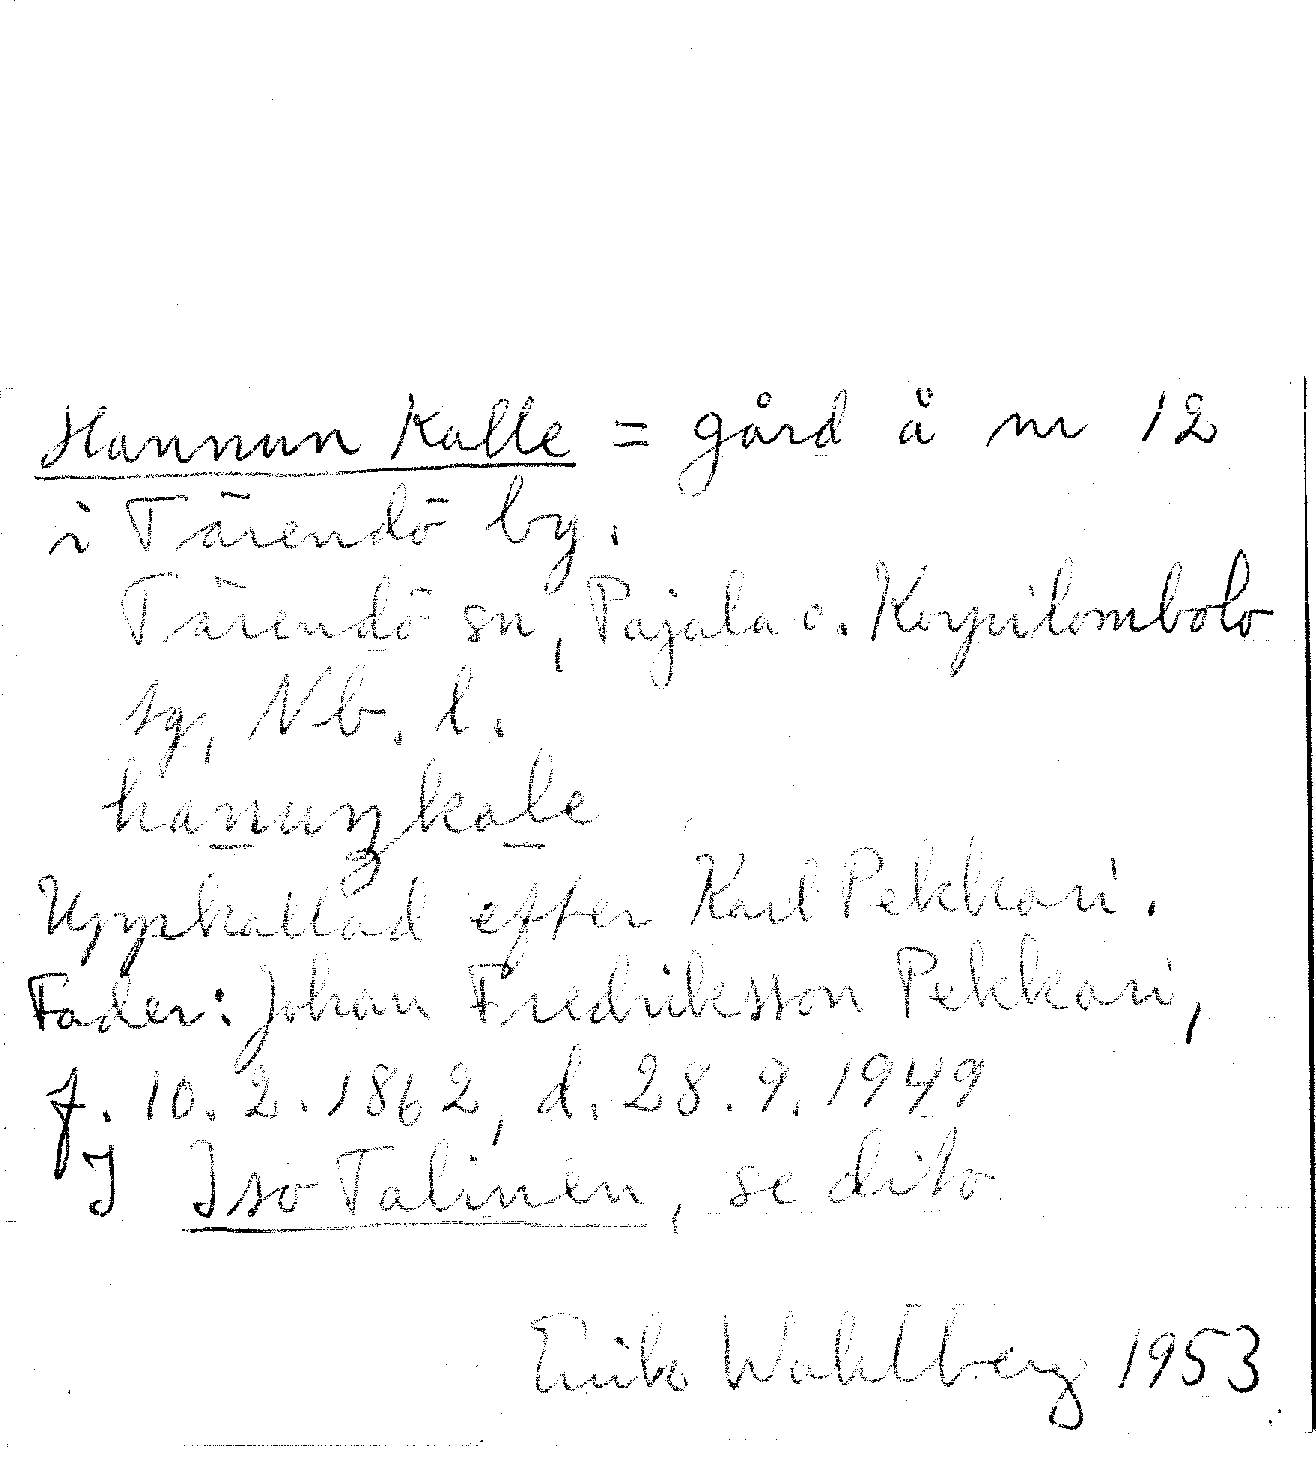 Hannun Kalle = gård å nr 12
i Tärendö by.
Tärendö sn, Pajala o. Korpilombolo
tg, Nb. l.
hanuŋkale
Uppkallad efter Karl Pekkari.
Fader: Johan Fredriksson Pekkari,
f. 10.2.1862, d. 28.9.1949
J Iso Talinen, se dito
Erik Wahlberg 1953